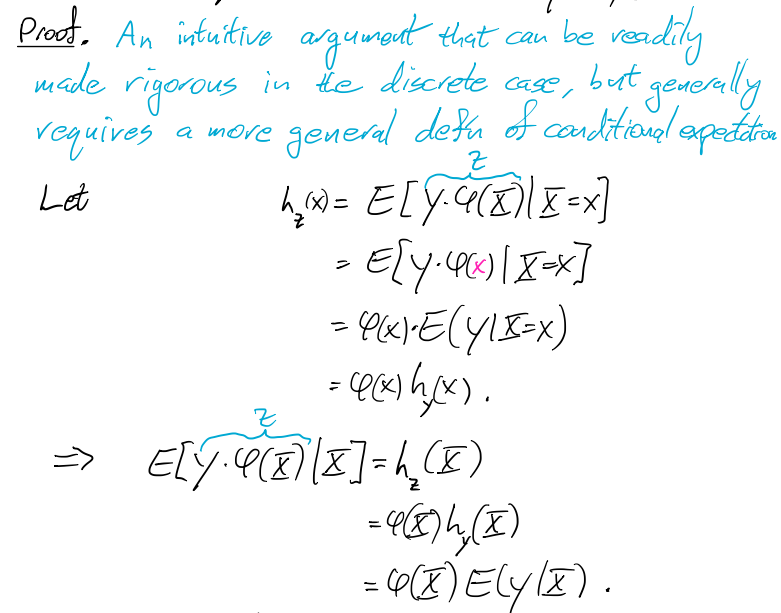 Proof. An intuitive argument that can be readily
made rigorous in the discrete case, but generally
requires a more general defn of conditional expectation
Z
Let h_Z(x) = E[Y·φ(X)|X=x]
= E[Y·φ(x)|X=x]
= φ(x)·E(Y|X=x)
= φ(x) h_Y(x).
Z
⇒ E[Y·φ(X)|X] = h_Z(X)
= φ(X) h_Y(X)
= φ(X) E(Y|X).